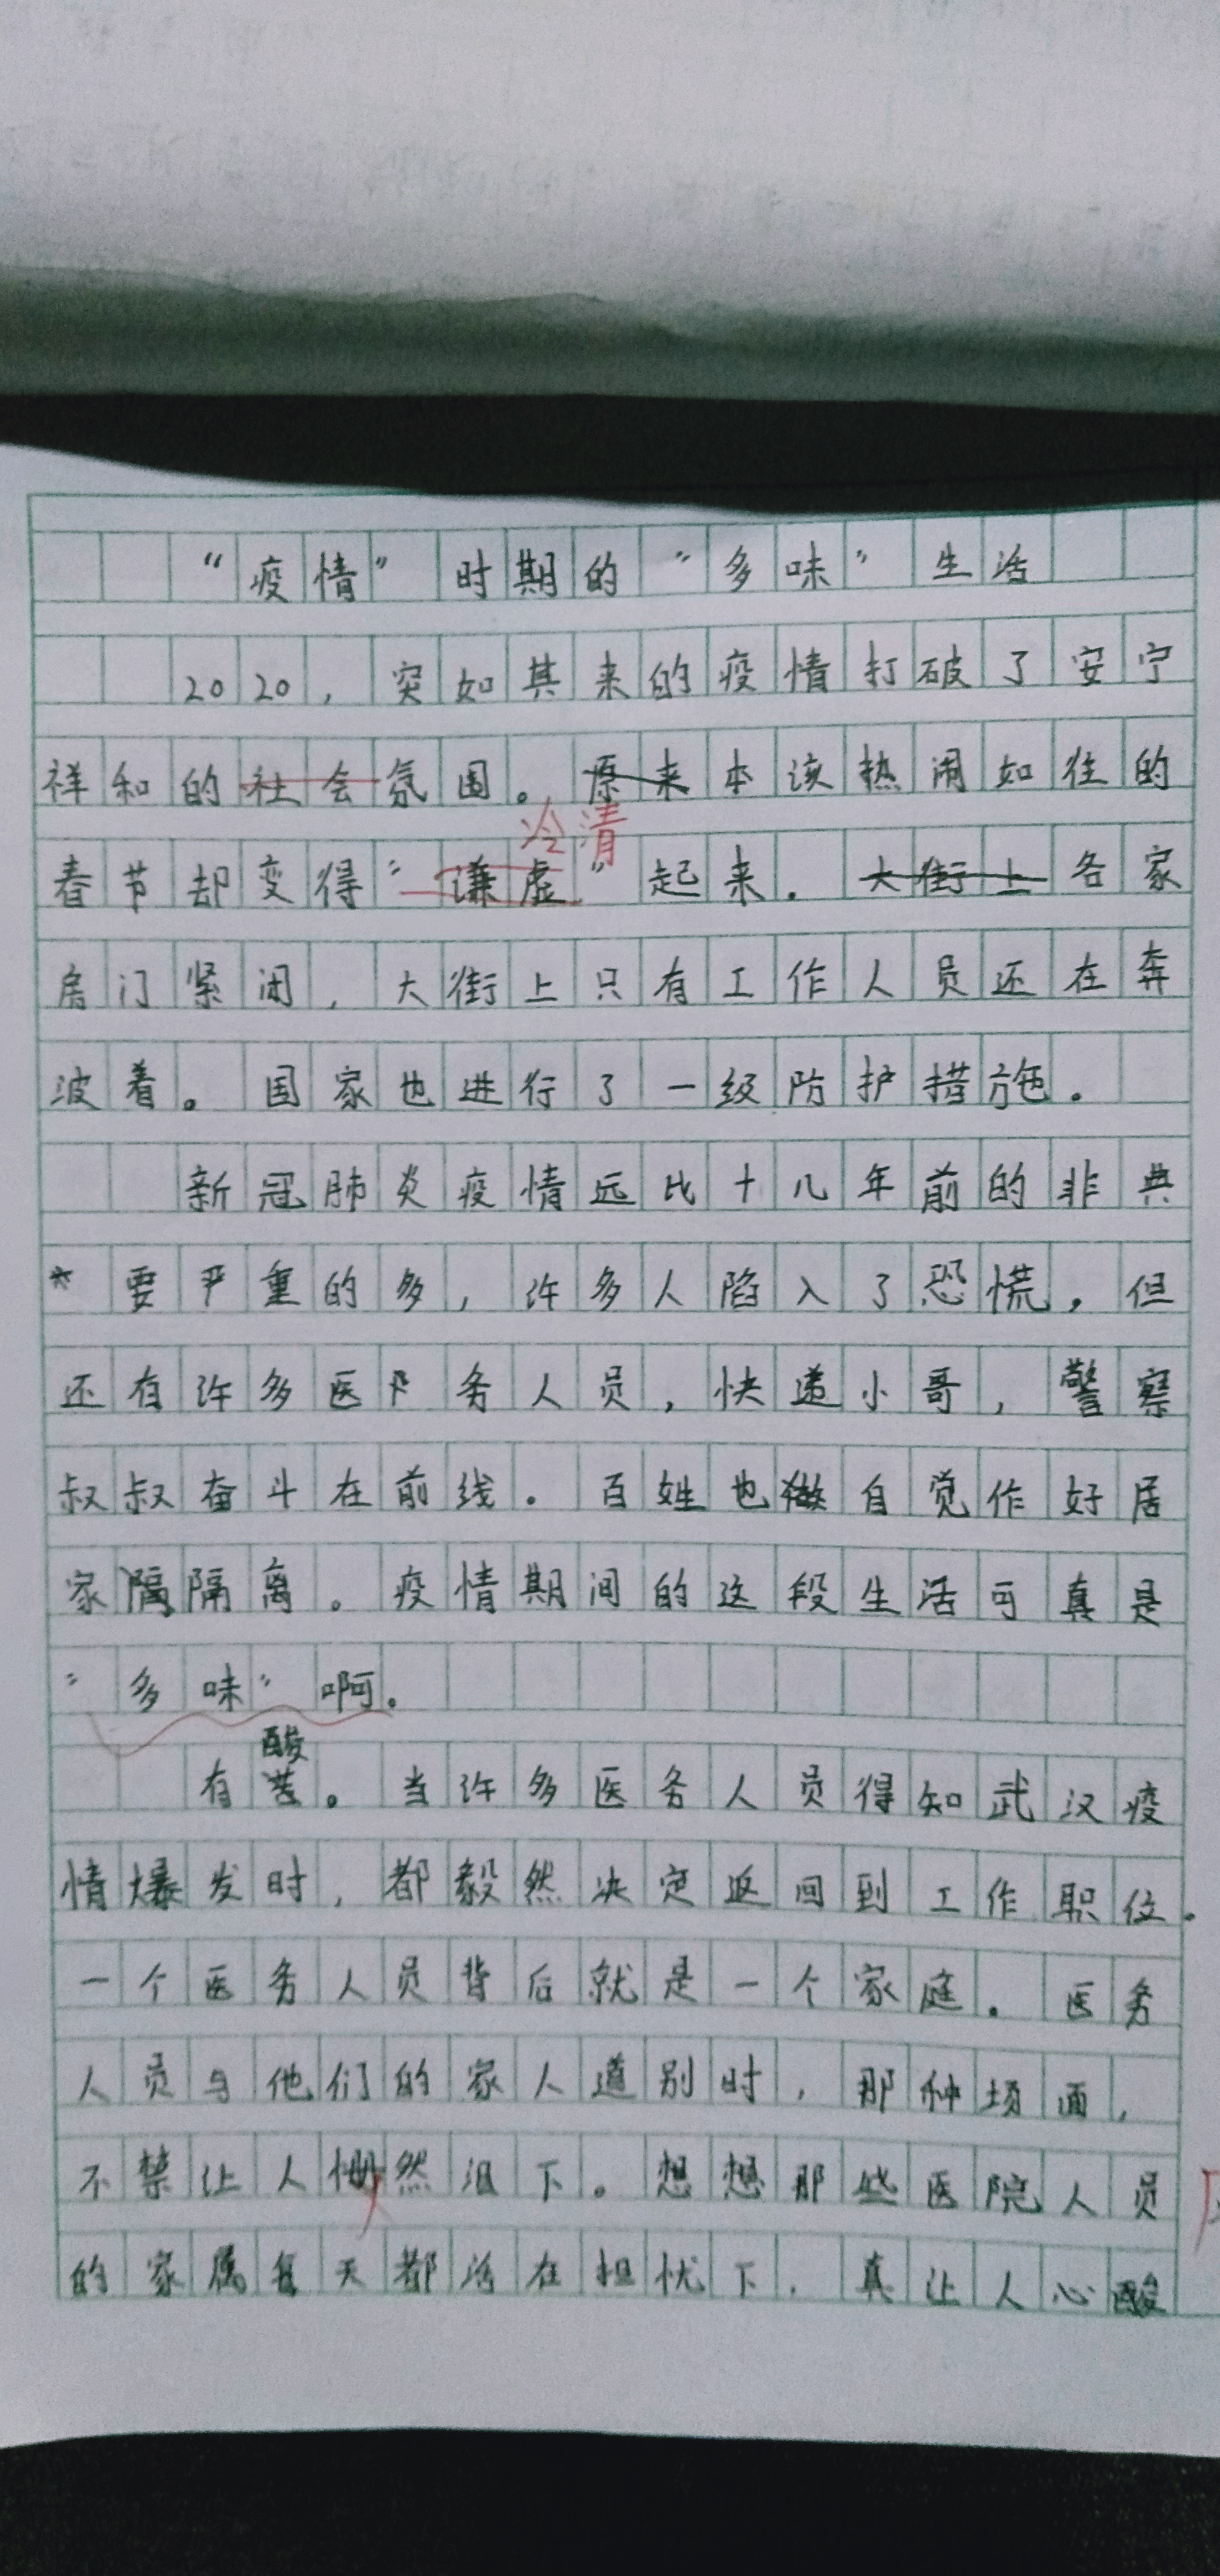 “疫情”时期的“多味”生活
2020，突如其来的疫情打破了安宁
祥和的社会氛围。原来本该热闹如往的
冷清
春节却变得“谦虚”起来。大街上各家
房门紧闭，大街上只有工作人员还在奔
波着。国家也进行了一级防护措施。
新冠肺炎疫情远比十几年前的非典
*要严重的多，许多人陷入了恐慌，但
还有许多医务人员，快递小哥，警察
叔叔奋斗在前线。百姓也做自觉作好居
家隔隔离。疫情期间的这段生活可真是
“多味”啊。
酸
有苦。当许多医务人员得知武汉疫
情爆发时，都毅然决定返回到工作职位。
一个医务人员背后就是一个家庭。医务
人员与他们的家人道别时，那种场面，
不禁让人然泪下。想想那些医院人员
的家属每天都活在担忧下，真让人心酸